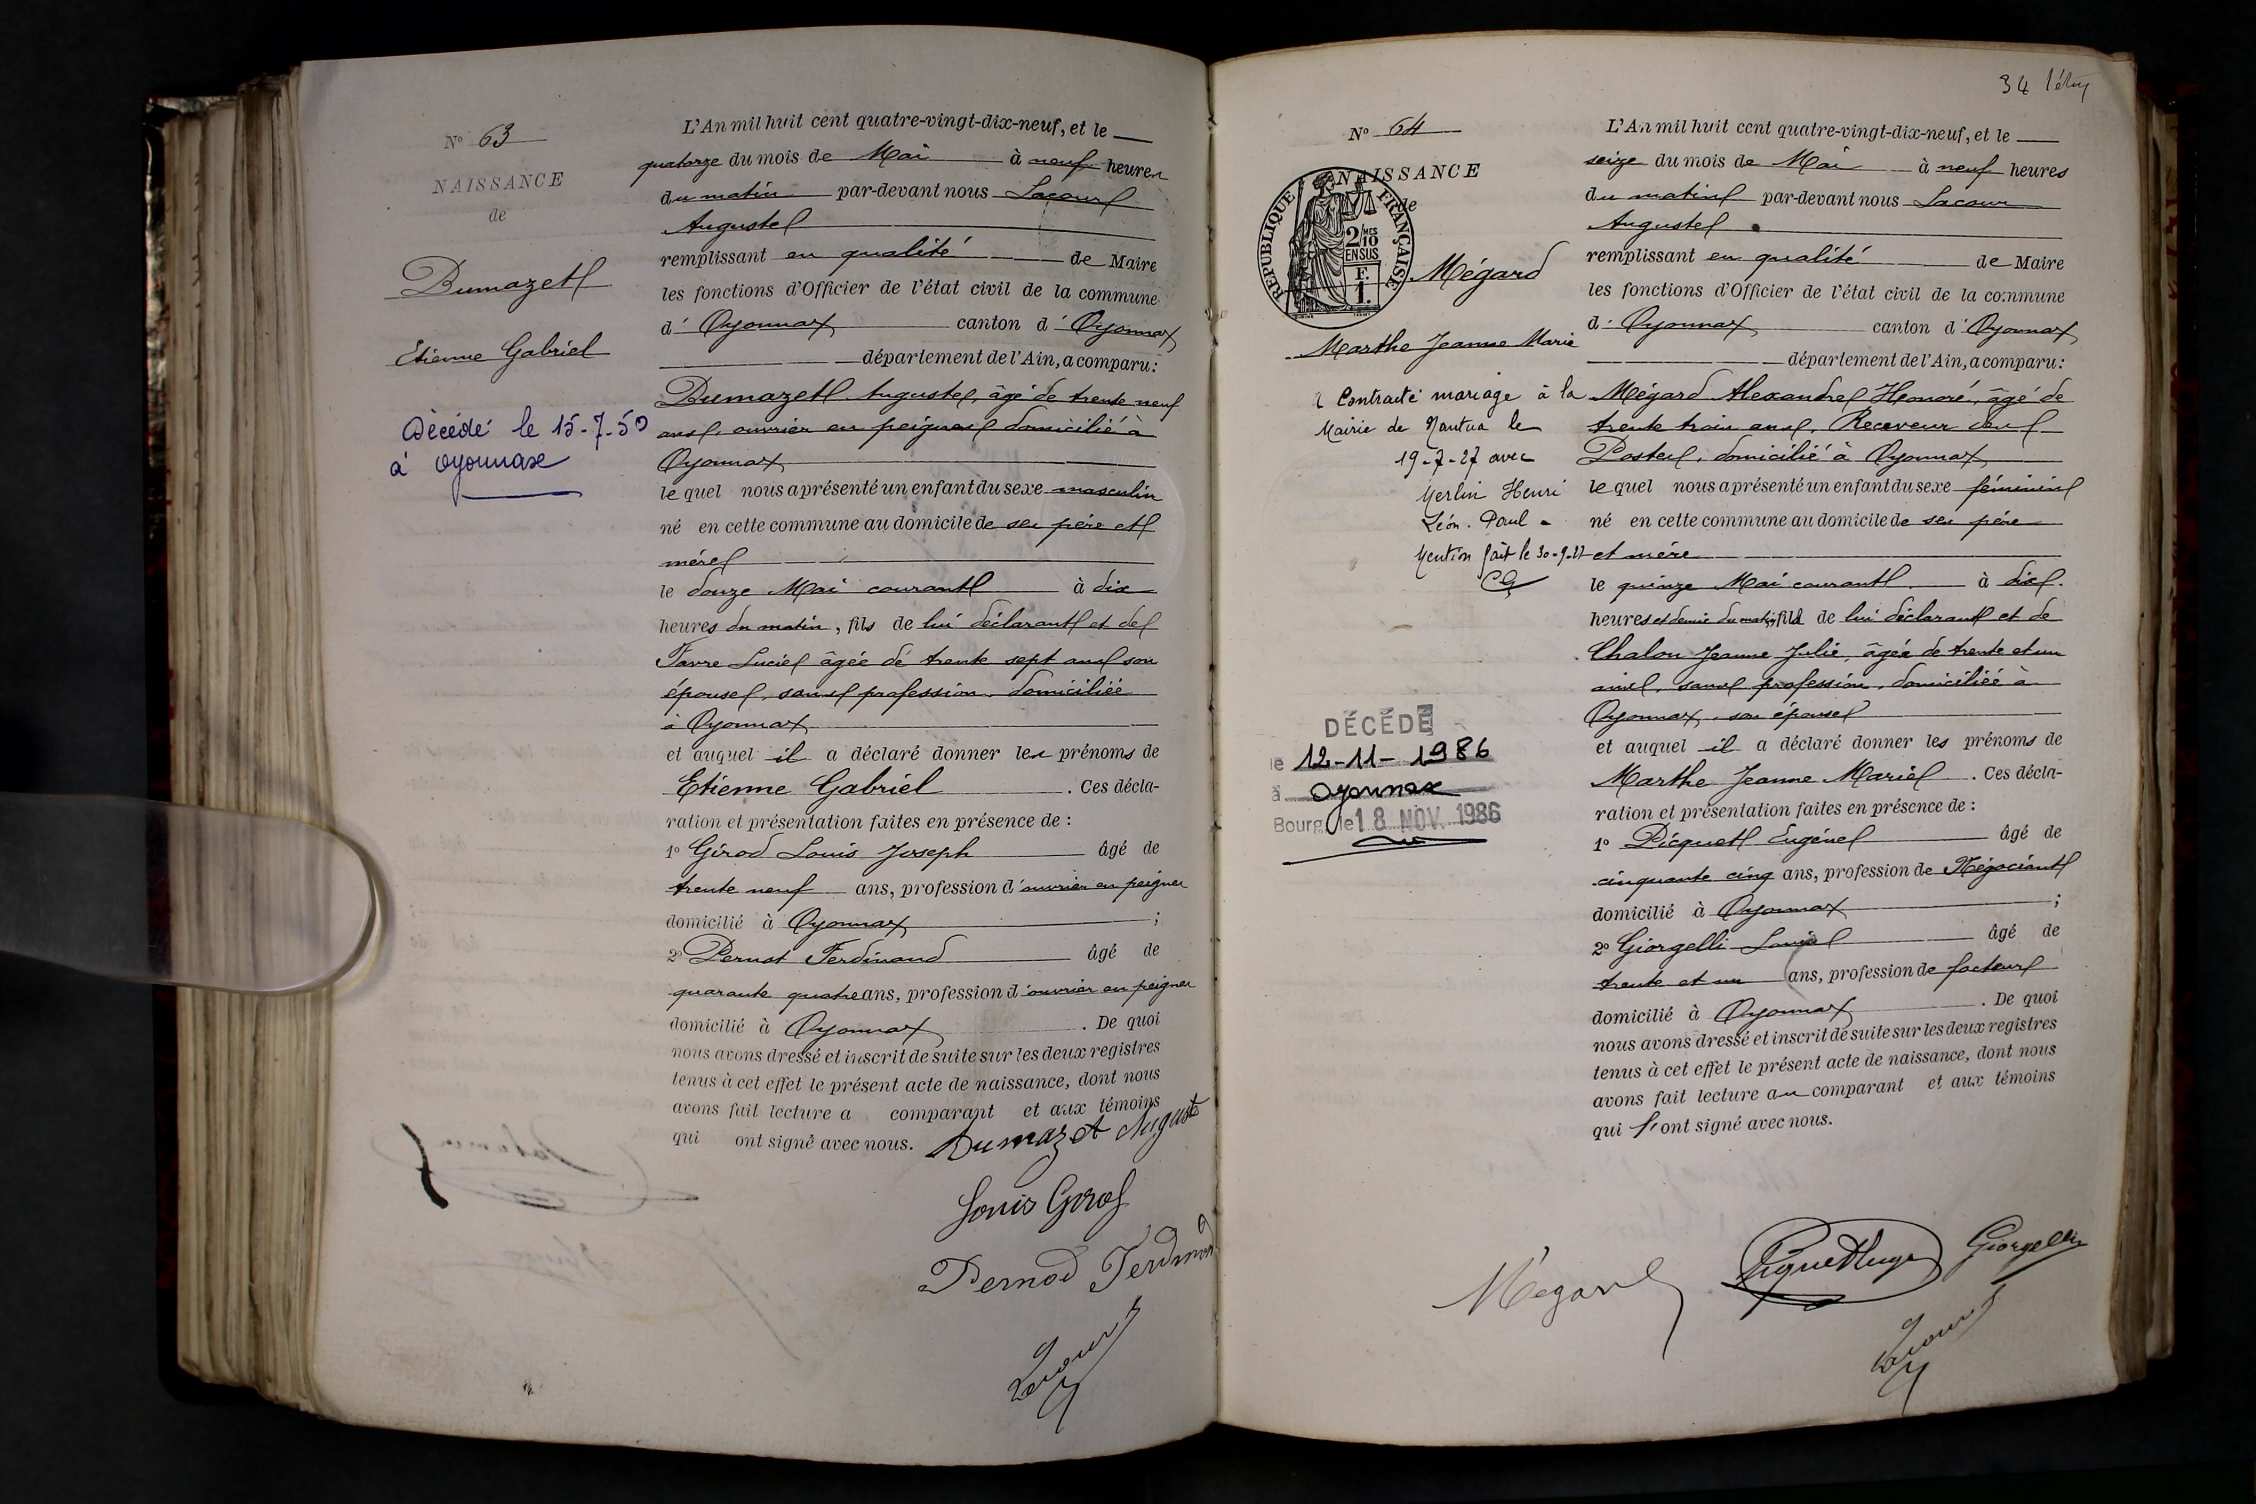 N° 63
NAISSANCE
de
Dumazet
Etienne Gabriel
Décédé le 15-7-50
à Oyonnax
L'An mil huit cent quatre-vingt-dix-neuf, et le
quatorze du mois de Mai à neuf heures
du matin par-devant nous Lacour
Auguste
remplissant en qualité de Maire
les fonctions d'Officier de l'état civil de la commune
d' Oyonnax canton d' Oyonnax
département de l'Ain, a comparu:
Dumazet Auguste, âgé de trente neuf
ans, ouvrier en peignes domicilié à
Oyonnax
le quel nous a présenté un enfant du sexe masculin
né en cette commune au domicile de ses père et
mère
le douze Mai courant à dix
heures du matin, fils de lui déclarant et de
Favre Lucie âgée de trente sept ans son
épouse, sans profession, domiciliée
à Oyonnax
et auquel il a déclaré donner les prénoms de
Etienne Gabriel . Ces décla-
ration et présentation faites en présence de :
1° Girod Louis Joseph âgé de
trente neuf ans, profession d'ouvrier en peignes
domicilié à Oyonnax ;
2° Pernot Ferdinand âgé de
quarante quatre ans, profession d'ouvrier en peignes
domicilié à Oyonnax . De quoi
nous avons dressé et inscrit de suite sur les deux registres
tenus à cet effet le présent acte de naissance, dont nous
avons fait lecture a comparant et aux témoins
qui ont signé avec nous. Dumazet Auguste
Louis Girod
Pernod Ferdinand
Lacour
34
N° 64
NAISSANCE
de
RÉPUBLIQUE FRANÇAISE
2/10 MES
EN SUS
F.
1.
Mégard
Marthe Jeanne Marie
Contracté mariage à la
Mairie de Nantua le
19-7-27 avec
Merlin Henri
Léon. Paul
Mention fait le 30-9-27
CG
DÉCÉDÉ
le 12-11-1986
à Oyonnax
Bourg, le 18 NOV. 1986
L'An mil huit cent quatre-vingt-dix-neuf, et le
seize du mois de Mai à neuf heures
du matin par-devant nous Lacour
Auguste
remplissant en qualité de Maire
les fonctions d'Officier de l'état civil de la commune
d' Oyonnax canton d' Oyonnax
département de l'Ain, a comparu:
Mégard Alexandre Honoré, âgé de
trente trois ans, Receveur des
Postes, domicilié à Oyonnax
le quel nous a présenté un enfant du sexe féminin
né en cette commune au domicile de ses père
et mère
le quinze Mai courant à dix
heures et demie du matin, fils de lui déclarant et de
Chalon Jeanne Julie, âgée de trente et un
ans, sans profession, domiciliée à
Oyonnax, son épouse
et auquel il a déclaré donner les prénoms de
Marthe Jeanne Marie . Ces décla-
ration et présentation faites en présence de :
1° Picquet Eugène âgé de
cinquante cinq ans, profession de Négociant
domicilié à Oyonnax ;
2° Giorgelli Louis âgé de
trente et un ans, profession de facteur
domicilié à Oyonnax . De quoi
nous avons dressé et inscrit de suite sur les deux registres
tenus à cet effet le présent acte de naissance, dont nous
avons fait lecture au comparant et aux témoins
qui l'ont signé avec nous.
Mégard
Giorgelli
Lacour